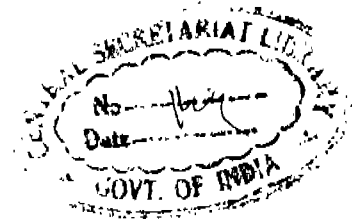 CENTRAL SECRETARIAT LIBRARY
No
Date
GOVT. OF INDIA